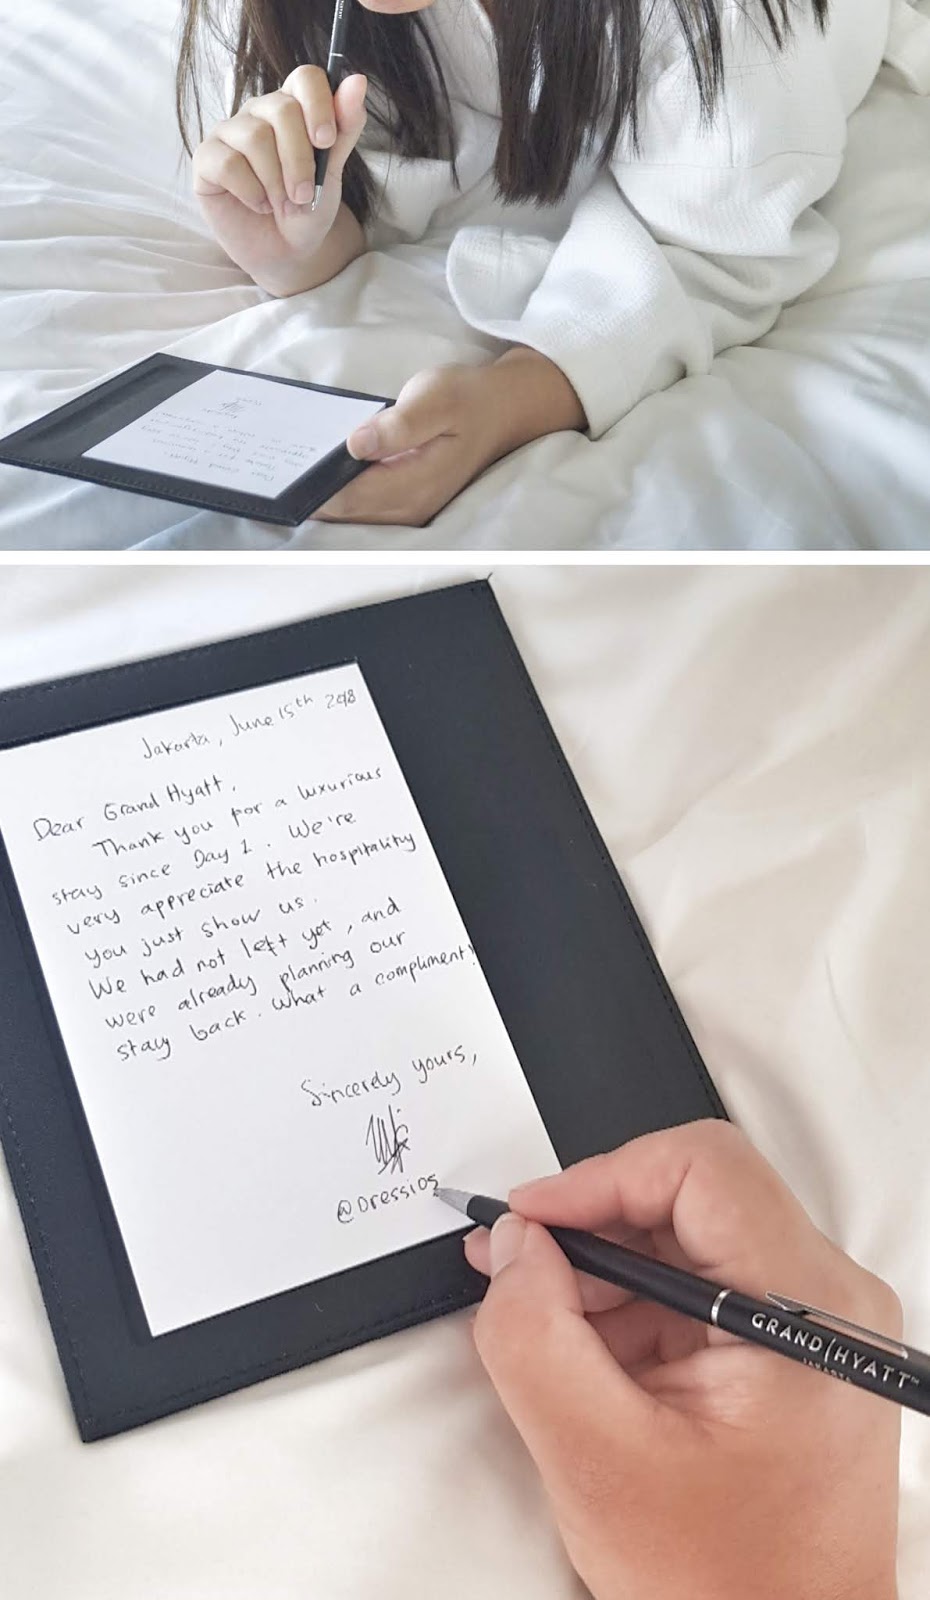 Jakarta, June 15th 2018
Dear Grand Hyatt,
Thank you for a luxurious
stay since Day 1. We're
very appreciate the hospitality
you just show us.
We had not left yet, and
were already planning our
stay back. What a compliment!
Sincerely yours,
@Dressios
GRAND HYATT™
JAKARTA